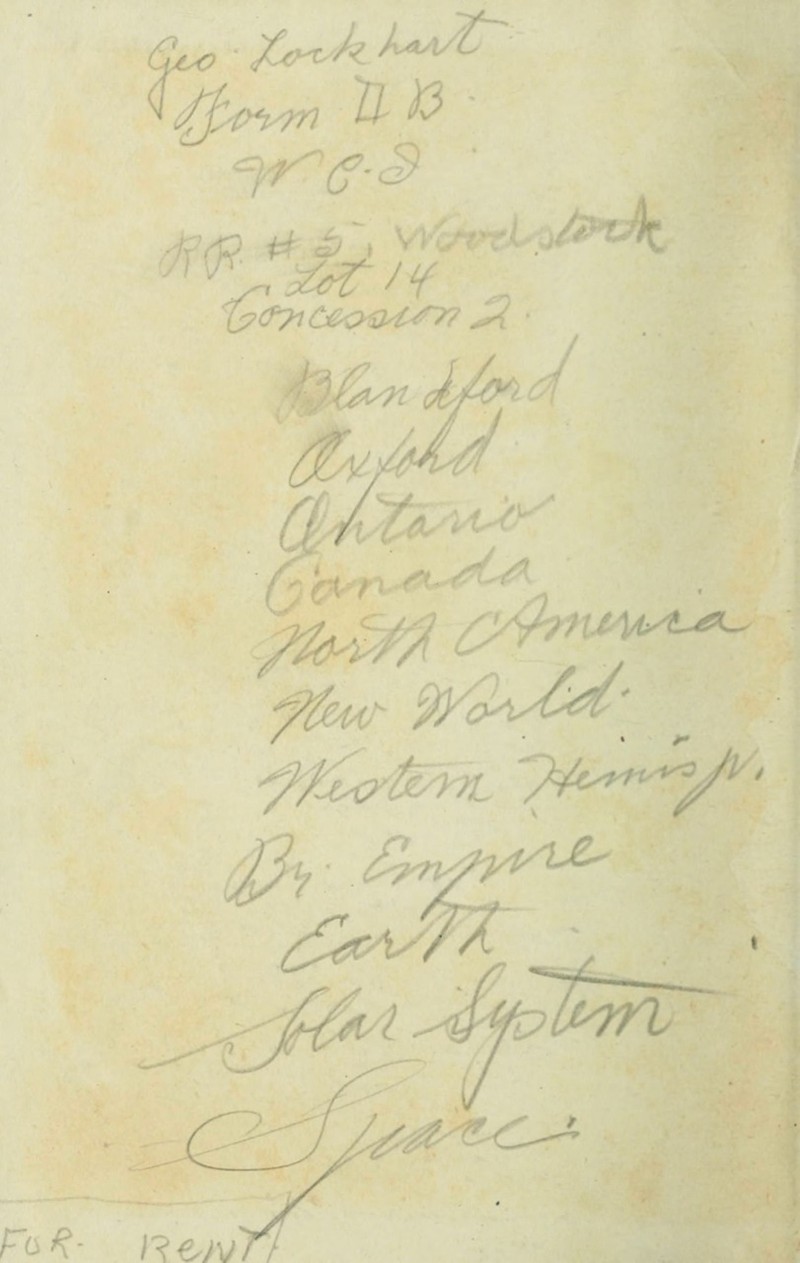 Geo Lockhart
Form II B
W C. I
RR # 5, Woodstock
Lot 14
Concession 2.
Blandford
Oxford
Ontario
Canada
North America
New World.
Western Hemisp.
Br. Empire
Earth
Solar System
Space.
FOR- RENT